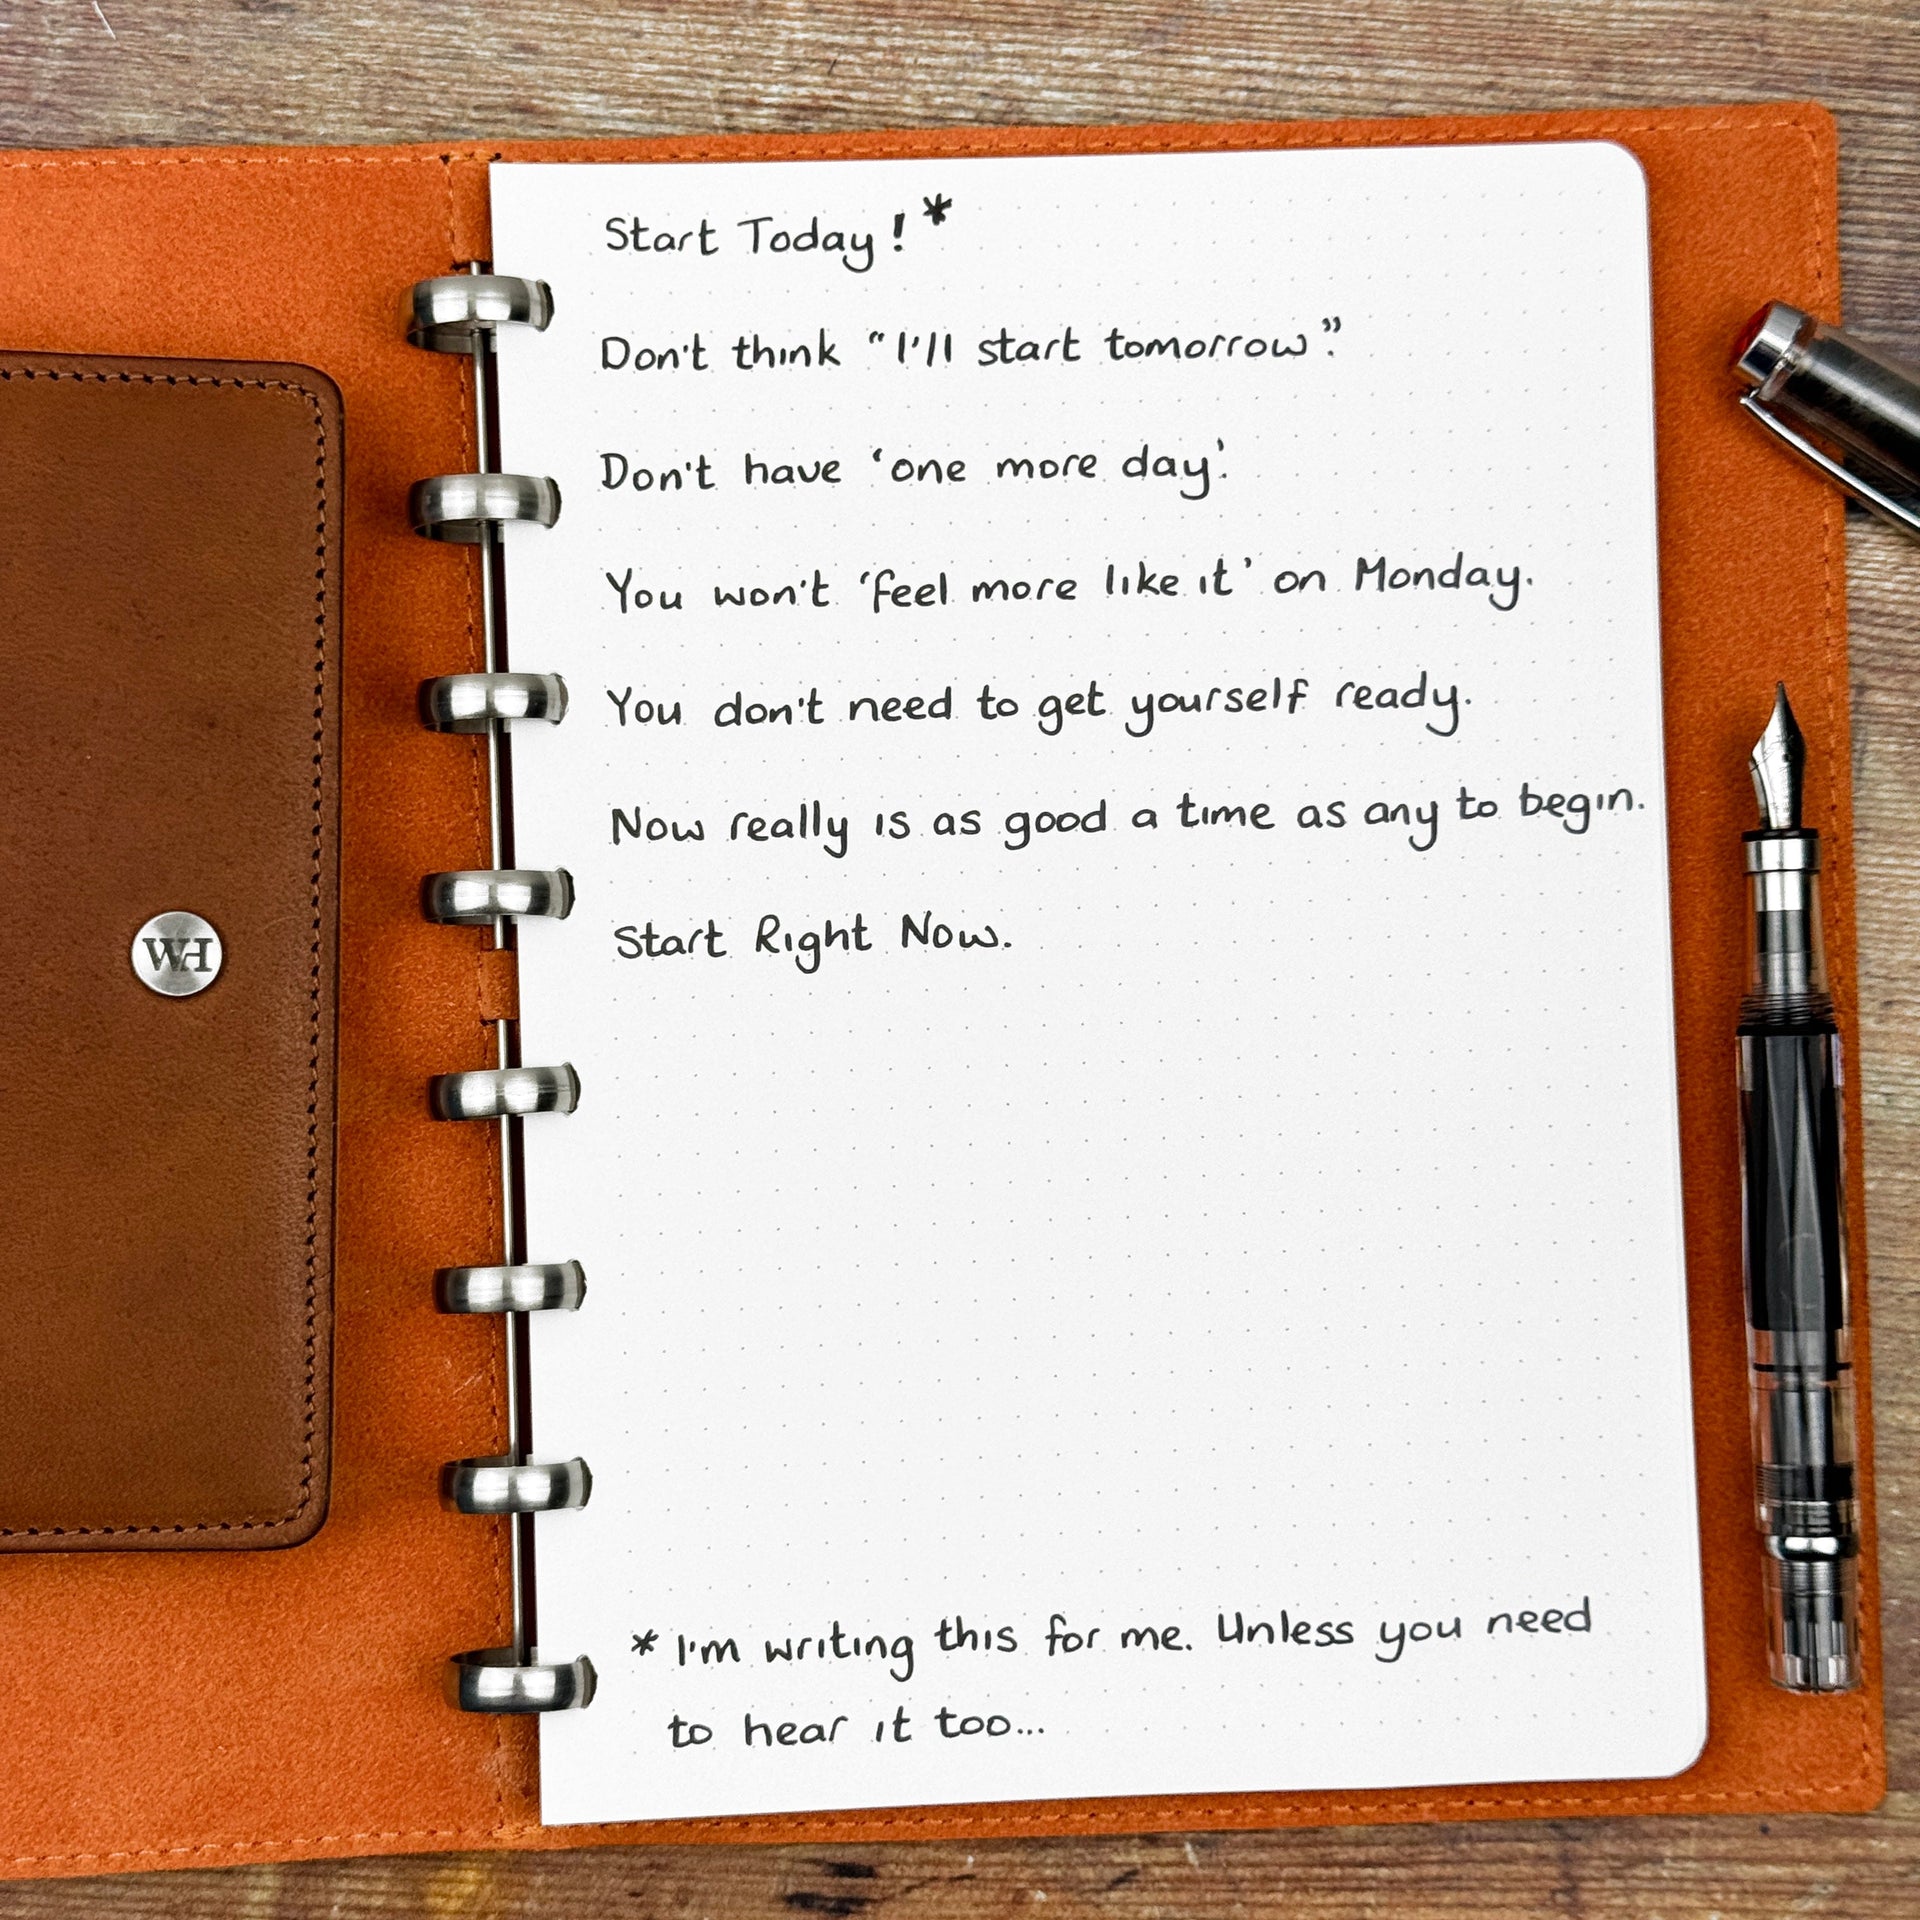 Start Today!*
Don't think "I'll start tomorrow".
Don't have 'one more day'.
You won't 'feel more like it' on Monday.
You don't need to get yourself ready.
Now really is as good a time as any to begin.
Start Right Now.
* I'm writing this for me. Unless you need
to hear it too...
WH